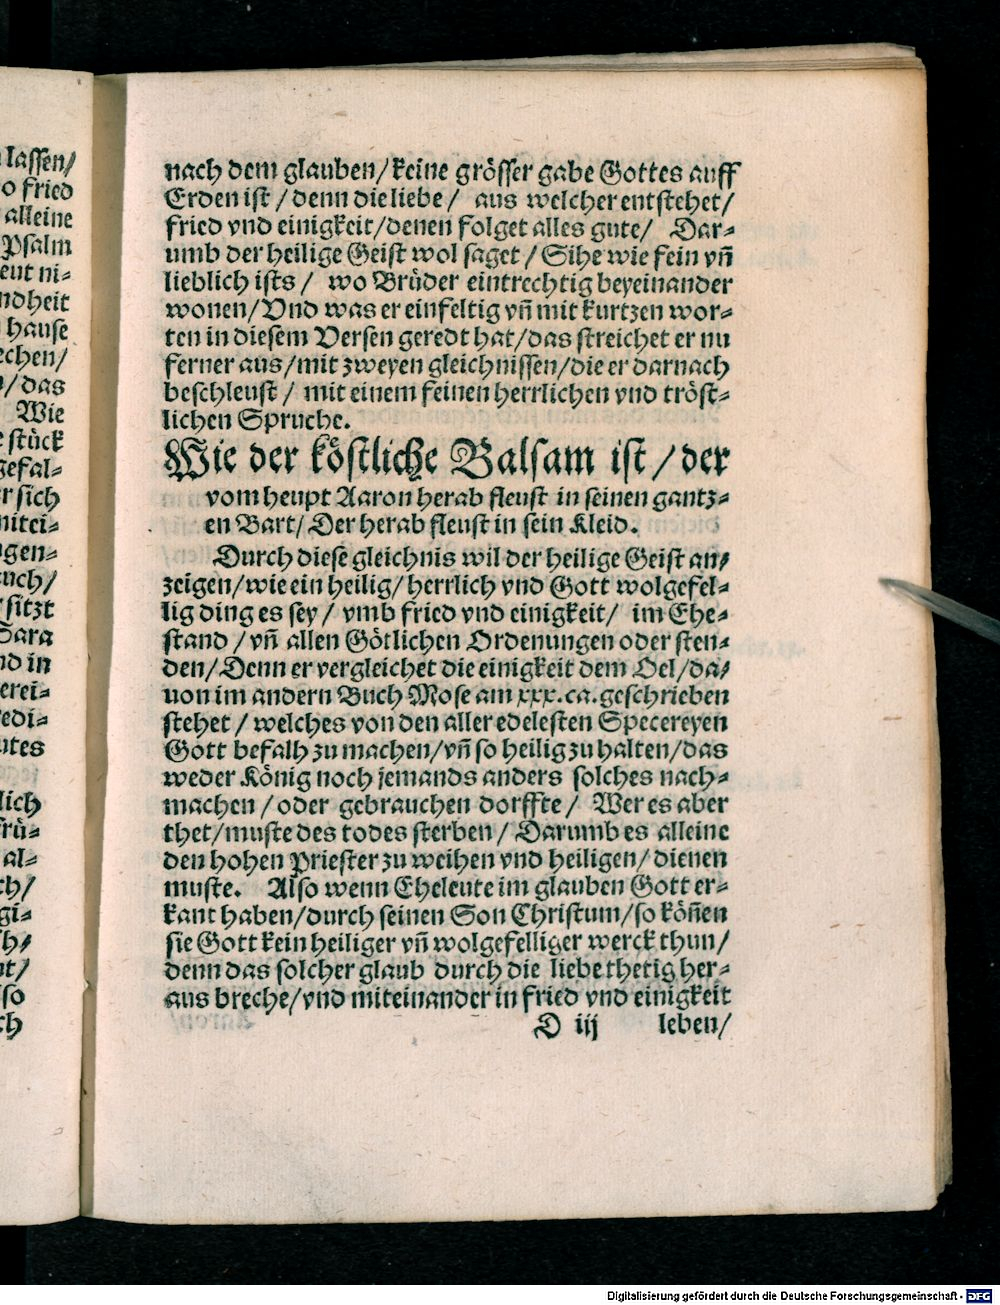 lassen/
o fried
alleine
Psalm
eut ni⸗
ndheit
hause
echen/
/das
Wie
stück
gefal⸗
r sich
mitei⸗
gen⸗
uch/
sitzt
Sara
nd in
erei⸗
edi⸗
utes
lich
frü⸗
al⸗
ch/
gi⸗
h/
nt/
so
ch
nach dem glauben/keine grösser gabe Gottes auff
Erden ist / denn die liebe / aus welcher entstehet/
fried vnd einigkeit/denen folget alles gute/ Dar⸗
umb der heilige Geist wol saget / Sihe wie fein vn̄
lieblich ists / wo Brüder eintrechtig beyeinander
wonen/Vnd was er einfeltig vn̄ mit kurtzen wor⸗
ten in diesem Versen geredt hat/das streichet er nu
ferner aus/mit zweyen gleichnissen/die er darnach
beschleust / mit einem feinen herrlichen vnd tröst⸗
lichen Spruche.
Wie der köstliche Balsam ist / der
vom heupt Aaron herab fleust in seinen gantz⸗
en Bart/ Der herab fleust in sein Kleid.
Durch diese gleichnis wil der heilige Geist an/
zeigen/wie ein heilig/ herrlich vnd Gott wolgefel⸗
lig ding es sey / vmb fried vnd einigkeit/ im Ehe⸗
stand / vn̄ allen Götlichen Ordenungen oder sten⸗
den/Denn er vergleichet die einigkeit dem Oel/da/
uon im andern Buch Mose am xxx.ca.geschrieben
stehet / welches von den aller edelesten Specereyen
Gott befalh zu machen/vn̄ so heilig zu halten/das
weder König noch jemands anders solches nach⸗
machen / oder gebrauchen dorffte / Wer es aber
thet/muste des todes sterben / Darumb es alleine
den hohen Priester zu weihen vnd heiligen/ dienen
muste. Also wenn Eheleute im glauben Gott er⸗
kant haben/durch seinen Son Christum/so kön̄en
sie Gott kein heiliger vn̄ wolgefelliger werck thun/
denn das solcher glaub durch die liebe thetig her⸗
aus breche/vnd miteinander in fried vnd einigkeit
D iij leben/
Digitalisierung gefördert durch die Deutsche Forschungsgemeinschaft - DFG